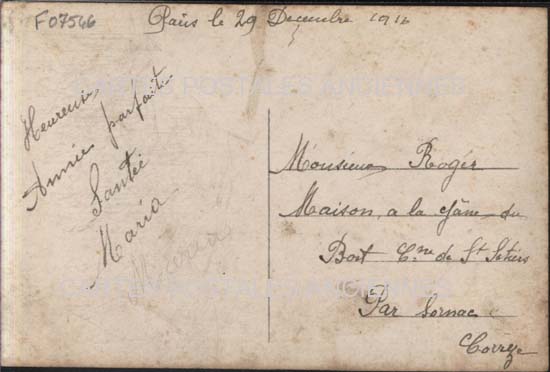 F07546
Paris le 29 Decembre 1916
Heureuse
Année parfaite
Santée
Maria
Maria
Monsieur Roger
Maison a la du
Bort Cne de St Setiers
Par Sornac
Corrèze
CARTES POSTALES ANCIENNES
CARTES POSTALES ANCIENNES